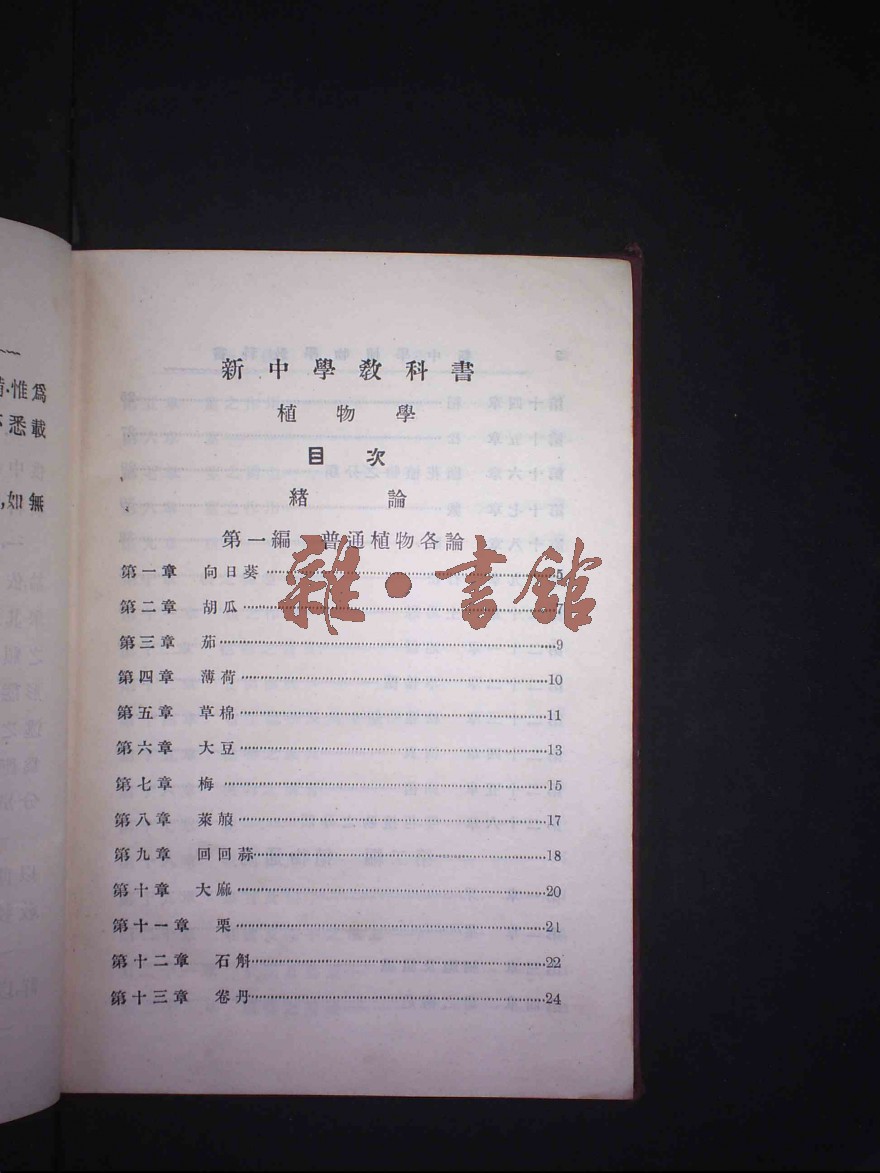 爲惟
載悉
無如,
新中學教科書
植物學
目次
緒論
第一編 普通植物各論
第一章 向日葵……5
第二章 胡瓜……7
第三章 茄……9
第四章 薄荷……10
第五章 草棉……11
第六章 大豆……13
第七章 梅……15
第八章 萊菔……17
第九章 回回蒜……18
第十章 大麻……20
第十一章 栗……21
第十二章 石斛……22
第十三章 卷丹……24
雜·書館